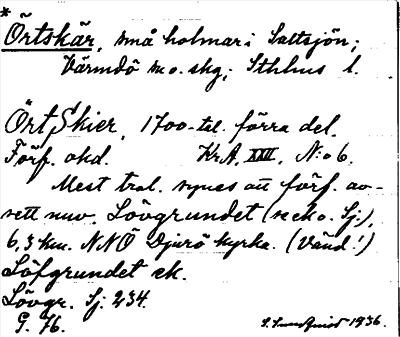 *
Örtskär, små holmar i Saltsjön;
Värmdö m o. skg; Sthlms l.
ÖrtSkier, 1700-tal. förra del.
Förf. okd. KrA, XXII, N:o 6.
Mest trol. synes att förf. av-
sett nuv. Lövgrundet (se eko. Sj.),
6,3 km. NNÖ Djurö kyrka. (Vänd!)
Löfgrundet ek.
Lövgr. Sj. 234.
G. 76.
1936.